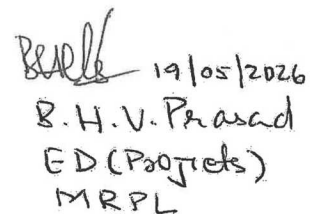 19/05/2026
B.H.V. Prasad
ED (Projects)
MRPL